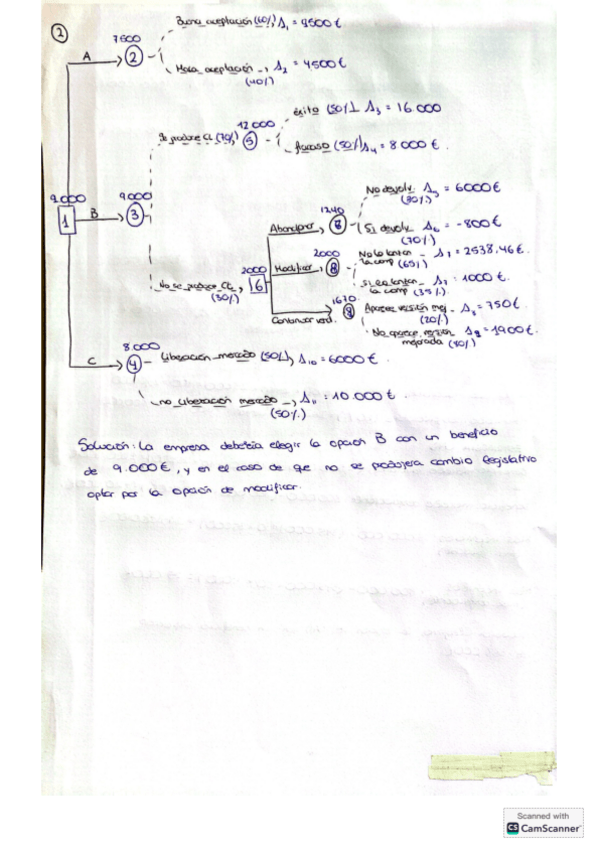 2
7500
Buena aceptación (60%), Δ1 = 9500 €
A
2
Mala aceptación Δ2 = 4500 €
(40%)
éxito (50%) Δ3 = 16.000
12 000
Se produce CL (70%)
5
fracaso (50%) Δ4 = 8000 €.
No devolv. Δ5 = 6000 €
(30%)
9.000
9000
1240
Abandonar
Si devolv. Δ6 = -800 €
(70%)
1
B
3
2000
No lo lanzan Δ7 = 2538,46 €.
la comp (65%)
2000
Modificar
8
No se produce CL,
6
Si lo lanzan Δ7 = 1000 €.
la comp (35%)
(30%)
1670
Aparece versión mej. Δ8 = 750 €
(20%)
Continuar
9
No aparece versión Δ9 = 1900 €.
mejorada
8.000
Liberación mercado (50%), Δ10 = 6000 €
C
4
no liberación mercado, Δ11 = 10.000 €.
(50%)
Solución: La empresa debería elegir la opción B con un beneficio
de 9.000 €, y en el caso de que no se produjera cambio legislativo
optar por la opción de modificar.
Scanned with
CS CamScanner